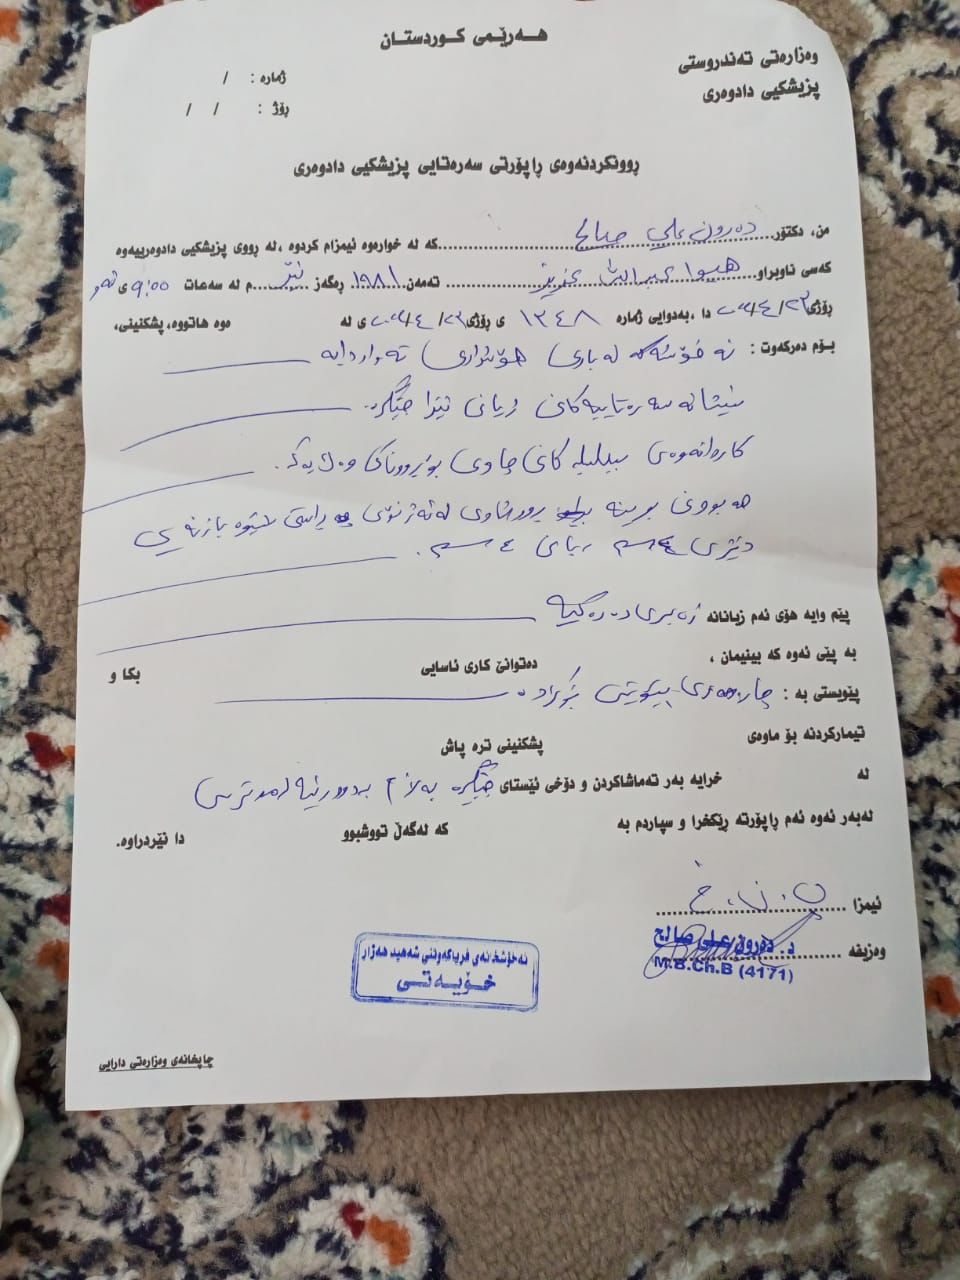 هەرێمی کوردستان
وەزارەتی تەندروستی
پزیشکیی دادوەری
ژمارە : /
ڕۆژ : / /
ڕوونکردنەوەی ڕاپۆرتی سەرەتایی پزیشکیی دادوەری
من، دکتۆر دەروون علي صالح کە لە خوارەوە ئیمزام کردوە ، لە ڕووی پزیشکیی دادوەرییەوە
کەسی ناوبراو هیوا عزیز تەمەن ١٩٨١ ڕەگەز نێر م لە سەعات ٩:٠٥ ی
ڕۆژی دا ، بەدوایی ژمارە ١٣٤٨ ی ڕۆژی ی لە موە هاتووە، پشکنینی،
بۆم دەرکەوت : نەخۆشەکە لەباری هۆشداری تەواودایە
نیشانە سەرەتاییەکانی ژیانی تێدا جێگرە.
کاردانەوەی بیلبیلەکانی چاوی بۆ ڕووناکی وەک یەکە.
هەبوونی برینە ڕووشاوی لە ئەژنۆی ڕاستی شێوە بازنەیی
درێژی ٤سم پانی ٤سم.
پێم وایە هۆی ئەم زیانانە زەبری دەرەکیە
بە پێی ئەوە کە بینیمان ، دەتوانێ کاری ئاسایی بکا و
پێویستی بە : چارەسەری پێویستی بۆکراوە
تیمارکردنە بۆ ماوەی پشکنینی ترە پاش
لە خرایە بەر تەماشاکردن و دۆخی ئێستای جێگرە بەڵام بەدوورنیە لە مەترسی
لەبەر ئەوە ئەم ڕاپۆرتە ڕێکخرا و سپاردم بە کە لەگەڵ تووشبوو دا نێردراوە.
ئیمزا ن.ن.خ
وەزیفە د. دەروون علی صالح
M.B.Ch.B (4171)
نەخۆشخانەی فریاکەوتنی شەهید هەژار
خۆیەتی
چاپخانەی وەزارەتی دارایی